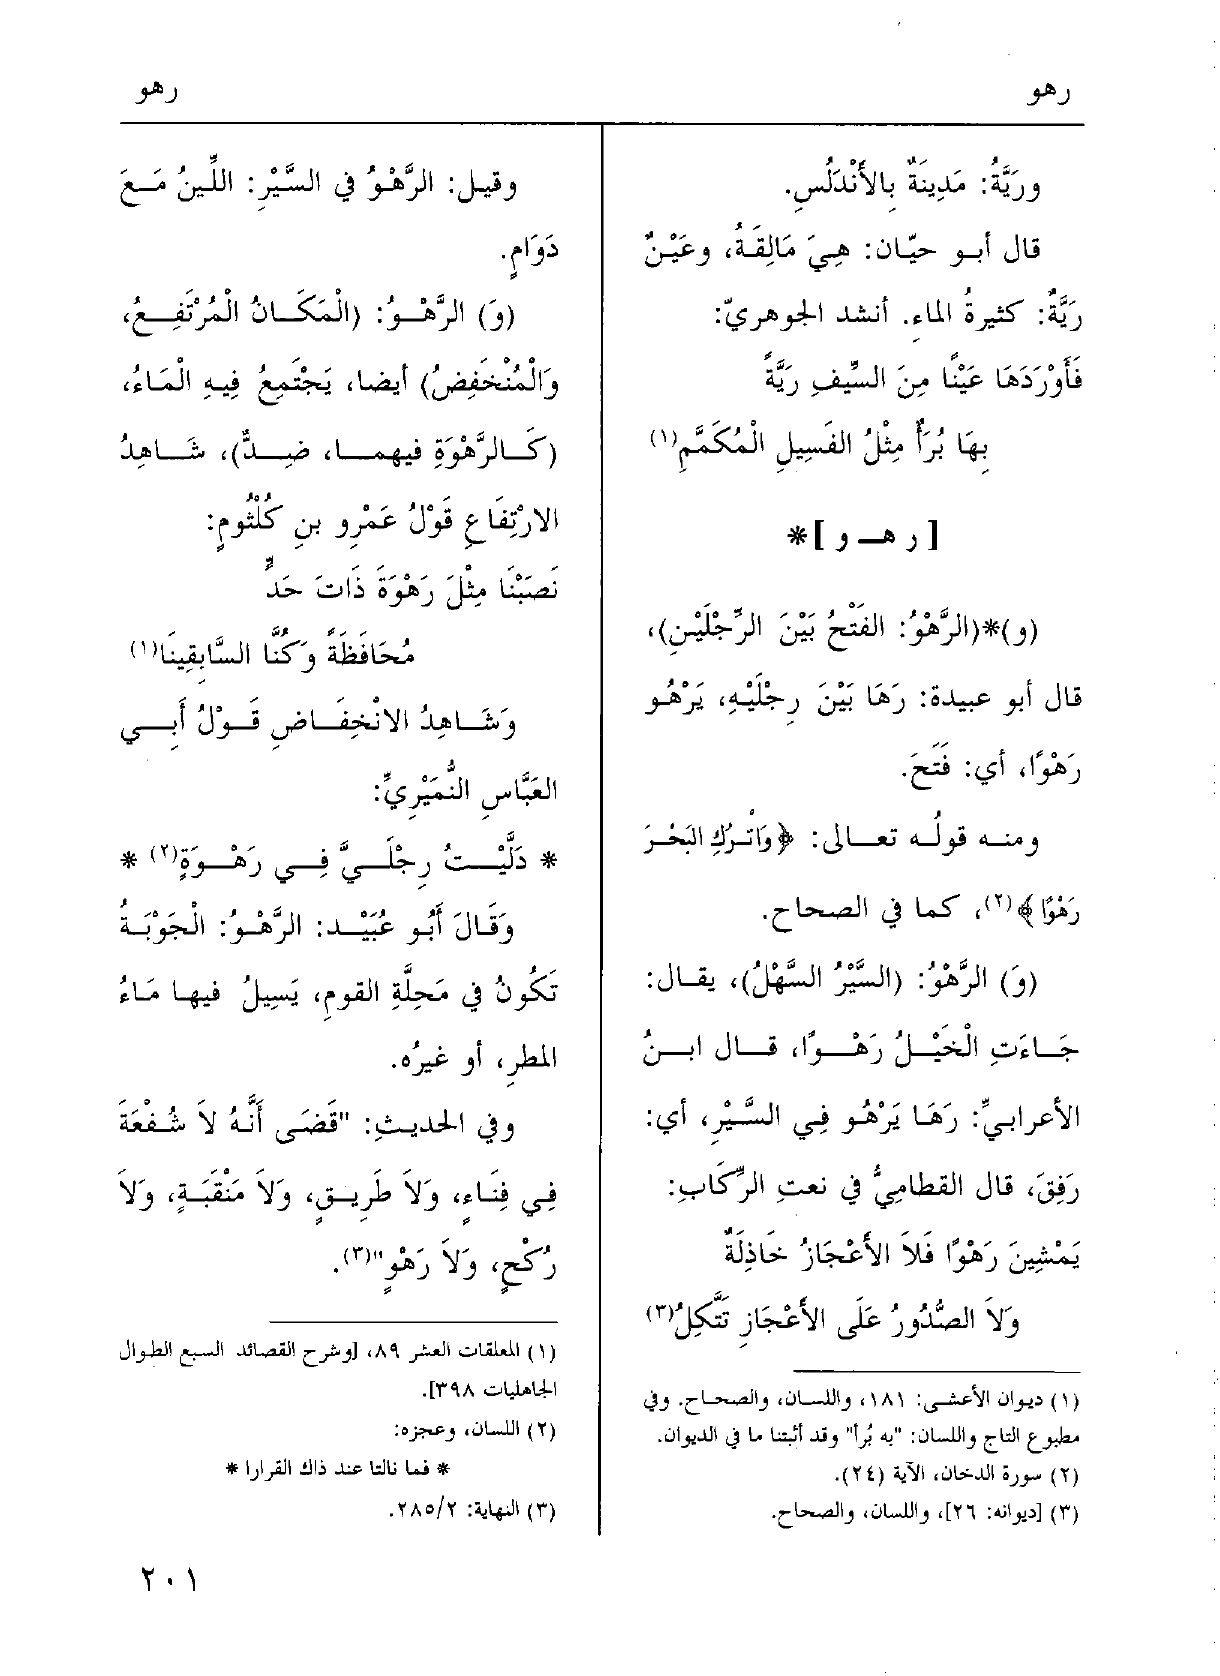 رهو
رهو
ورَيَّةُ: مَدِينَةٌ بِالأَنْدَلُسِ.
قال أبو حيّان: هِيَ مَالِقَةُ، وعَيْنٌ
رَيَّةٌ: كثيرةُ الماءِ. أنشد الجوهريّ:
فَأَوْرَدَهَا عَيْنًا مِنَ السِّيفِ رَيَّةً
بِهَا بُرَأٌ مِثْلُ الفَسِيلِ الْمُكَمَّمِ(١)
[ ر هـ و ]*
(و)*(الرَّهْوُ: الفَتْحُ بَيْنَ الرِّجْلَيْنِ)،
قال أبو عبيدة: رَهَا بَيْنَ رِجْلَيْهِ، يَرْهُو
رَهْوًا، أي: فَتَحَ.
ومنه قولُه تعالى: ﴿وَاتْرُكِ البَحْرَ
رَهْوًا﴾(٢)، كما في الصحاح.
(وَ) الرَّهْوُ: (السَّيْرُ السَّهْلُ)، يقال:
جَاءَتِ الْخَيْلُ رَهْوًا، قال ابنُ
الأعرابيِّ: رَهَا يَرْهُو فِي السَّيْرِ، أي:
رَفِقَ، قال القطاميُّ في نعتِ الرِّكَابِ:
يَمْشِينَ رَهْوًا فَلاَ الأَعْجَازُ خَاذِلَةٌ
وَلاَ الصُّدُورُ عَلَى الأَعْجَازِ تَتَّكِلُ(٣)
(١) ديوان الأعشى: ١٨١، واللسان، والصحاح. وفي
مطبوع التاج واللسان: "به بُرأ" وقد أثبتنا ما في الديوان.
(٢) سورة الدخان، الآية (٢٤).
(٣) [ديوانه: ٢٦]، واللسان، والصحاح.
وقيل: الرَّهْوُ في السَّيْرِ: اللِّينُ مَعَ
دَوَامٍ.
(وَ) الرَّهْوُ: (الْمَكَانُ الْمُرْتَفِعُ،
وَالْمُنْخَفِضُ) أيضا، يَجْتَمِعُ فِيهِ الْمَاءُ،
(كَالرَّهْوَةِ فيهما، ضِدٌّ)، شَاهِدُ
الارْتِفَاعِ قَوْلُ عَمْرِو بنِ كُلْثُومٍ:
نَصَبْنَا مِثْلَ رَهْوَةَ ذَاتَ حَدٍّ
مُحَافَظَةً وَكُنَّا السَّابِقِينَا(١)
وَشَاهِدُ الانْخِفَاضِ قَوْلُ أَبِي
العَبَّاسِ النُّمَيْرِيِّ:
* دَلَّيْتُ رِجْلَيَّ فِي رَهْوَةٍ(٢) *
وَقَالَ أَبُو عُبَيْد: الرَّهْوُ: الْجَوْبَةُ
تَكُونُ في مَحِلَّةِ القومِ، يَسِيلُ فيها مَاءُ
المطرِ، أو غيرُه.
وفي الحديثِ: "قَضَى أَنَّهُ لاَ شُفْعَةَ
فِي فِنَاءٍ، وَلاَ طَرِيقٍ، وَلاَ مَنْقَبَةٍ، وَلاَ
رُكْحٍ، وَلاَ رَهْوٍ"(٣).
(١) المعلقات العشر ٨٩، [وشرح القصائد السبع الطوال
الجاهليات ٣٩٨].
(٢) اللسان، وعجزه:
* فما نالتا عند ذاك القرارا *
(٣) النهاية: ٢/٢٨٥.
٢٠١